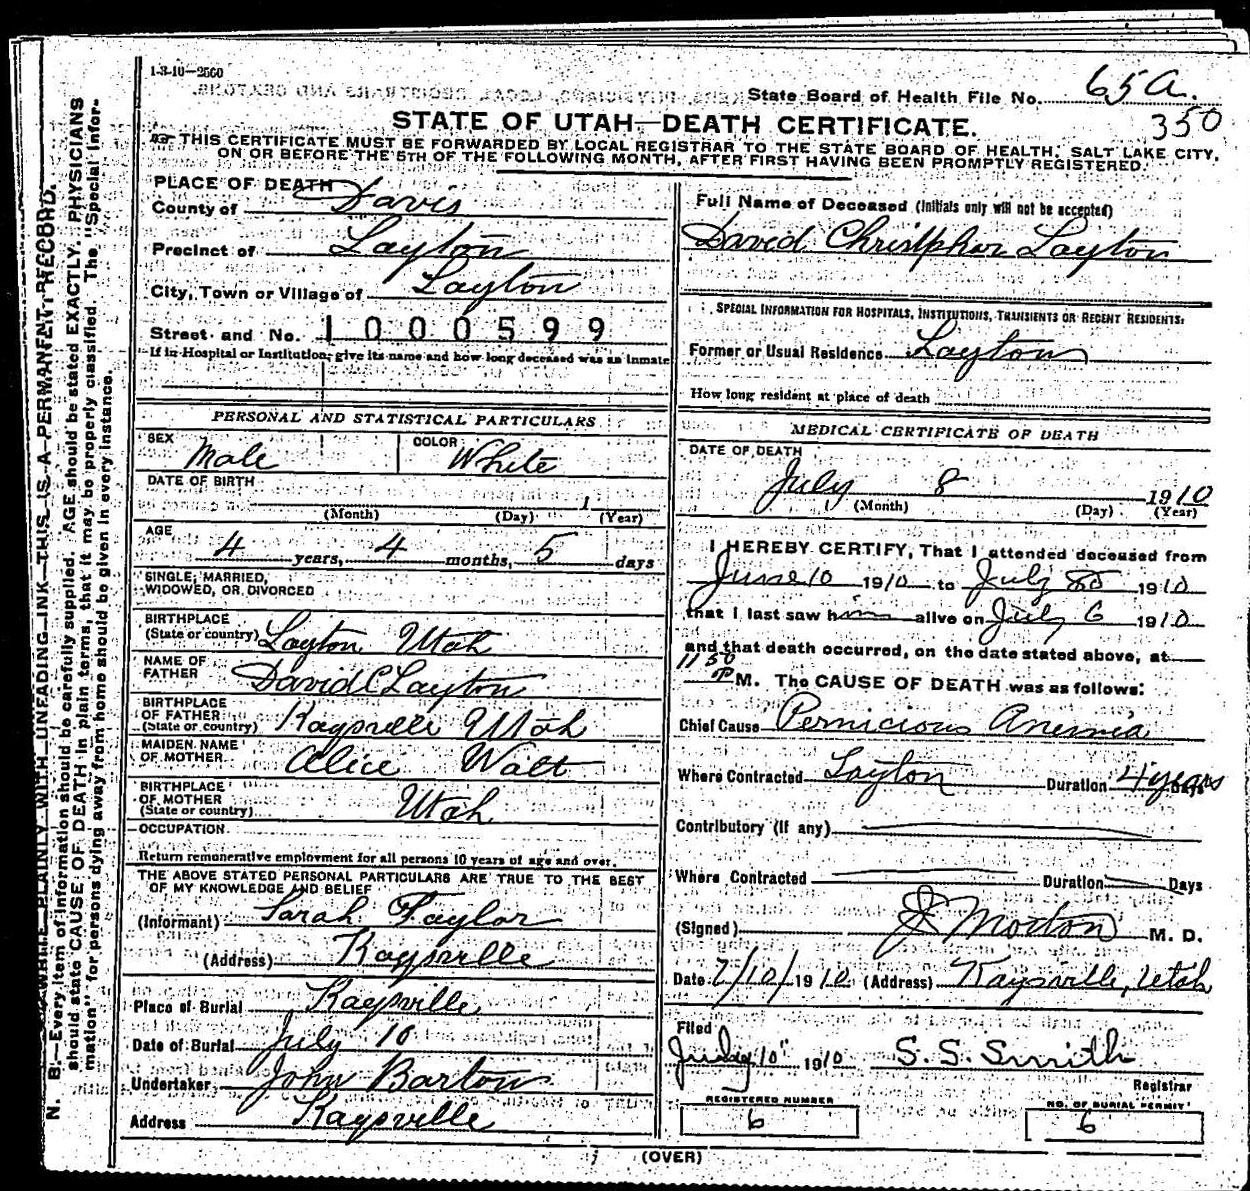 1-3-10—2500
State Board of Health File No. 65a.
350
STATE OF UTAH—DEATH CERTIFICATE.
THIS CERTIFICATE MUST BE FORWARDED BY LOCAL REGISTRAR TO THE STATE BOARD OF HEALTH, SALT LAKE CITY,
ON OR BEFORE THE 5TH OF THE FOLLOWING MONTH, AFTER FIRST HAVING BEEN PROMPTLY REGISTERED.
PLACE OF DEATH
County of Davis
Precinct of Layton
City, Town or Village of Layton
Street and No. 1000599
If in Hospital or Institution, give its name and how long deceased was an inmate
PERSONAL AND STATISTICAL PARTICULARS
SEX Male COLOR White
DATE OF BIRTH
(Month) (Day) 1 (Year)
AGE 4 years, 4 months, 5 days
SINGLE, MARRIED,
WIDOWED, OR DIVORCED
BIRTHPLACE
(State or country) Layton Utah
NAME OF
FATHER David C Layton
BIRTHPLACE
OF FATHER
(State or country) Kaysville Utah
MAIDEN NAME
OF MOTHER Alice Walt
BIRTHPLACE
OF MOTHER
(State or country) Utah
OCCUPATION
Return remunerative employment for all persons 10 years of age and over.
THE ABOVE STATED PERSONAL PARTICULARS ARE TRUE TO THE BEST
OF MY KNOWLEDGE AND BELIEF
(Informant) Sarah Taylor
(Address) Kaysville
Place of Burial Kaysville
Date of Burial July 10
Undertaker John Barton
Address Kaysville
Full Name of Deceased (Initials only will not be accepted)
David Christpher Layton
SPECIAL INFORMATION FOR HOSPITALS, INSTITUTIONS, TRANSIENTS OR RECENT RESIDENTS:
Former or Usual Residence Layton
How long resident at place of death
MEDICAL CERTIFICATE OF DEATH
DATE OF DEATH
July 8 1910
(Month) (Day) (Year)
I HEREBY CERTIFY, That I attended deceased from
June 10 1910 to July 8 1910
that I last saw him alive on July 6 1910
and that death occurred, on the date stated above, at
11 50
P M. The CAUSE OF DEATH was as follows:
Chief Cause Pernicious Anemia
Where Contracted Layton Duration 4 years Days
Contributory (if any)
Where Contracted Duration Days
(Signed) J Morton M. D.
Date 7/10/1910 (Address) Kaysville, Utah
Filed
July 10" 1910 S. S. Smith
Registrar
REGISTERED NUMBER
6
NO. OF BURIAL PERMIT
6
(OVER)
WRITE PLAINLY WITH UNFADING INK—THIS IS A PERMANENT RECORD.
N. B.—Every item of information should be carefully supplied. AGE should be stated EXACTLY. PHYSICIANS
should state CAUSE OF DEATH in plain terms, that it may be properly classified. The "Special Infor-
mation" for persons dying away from home should be given in every instance.